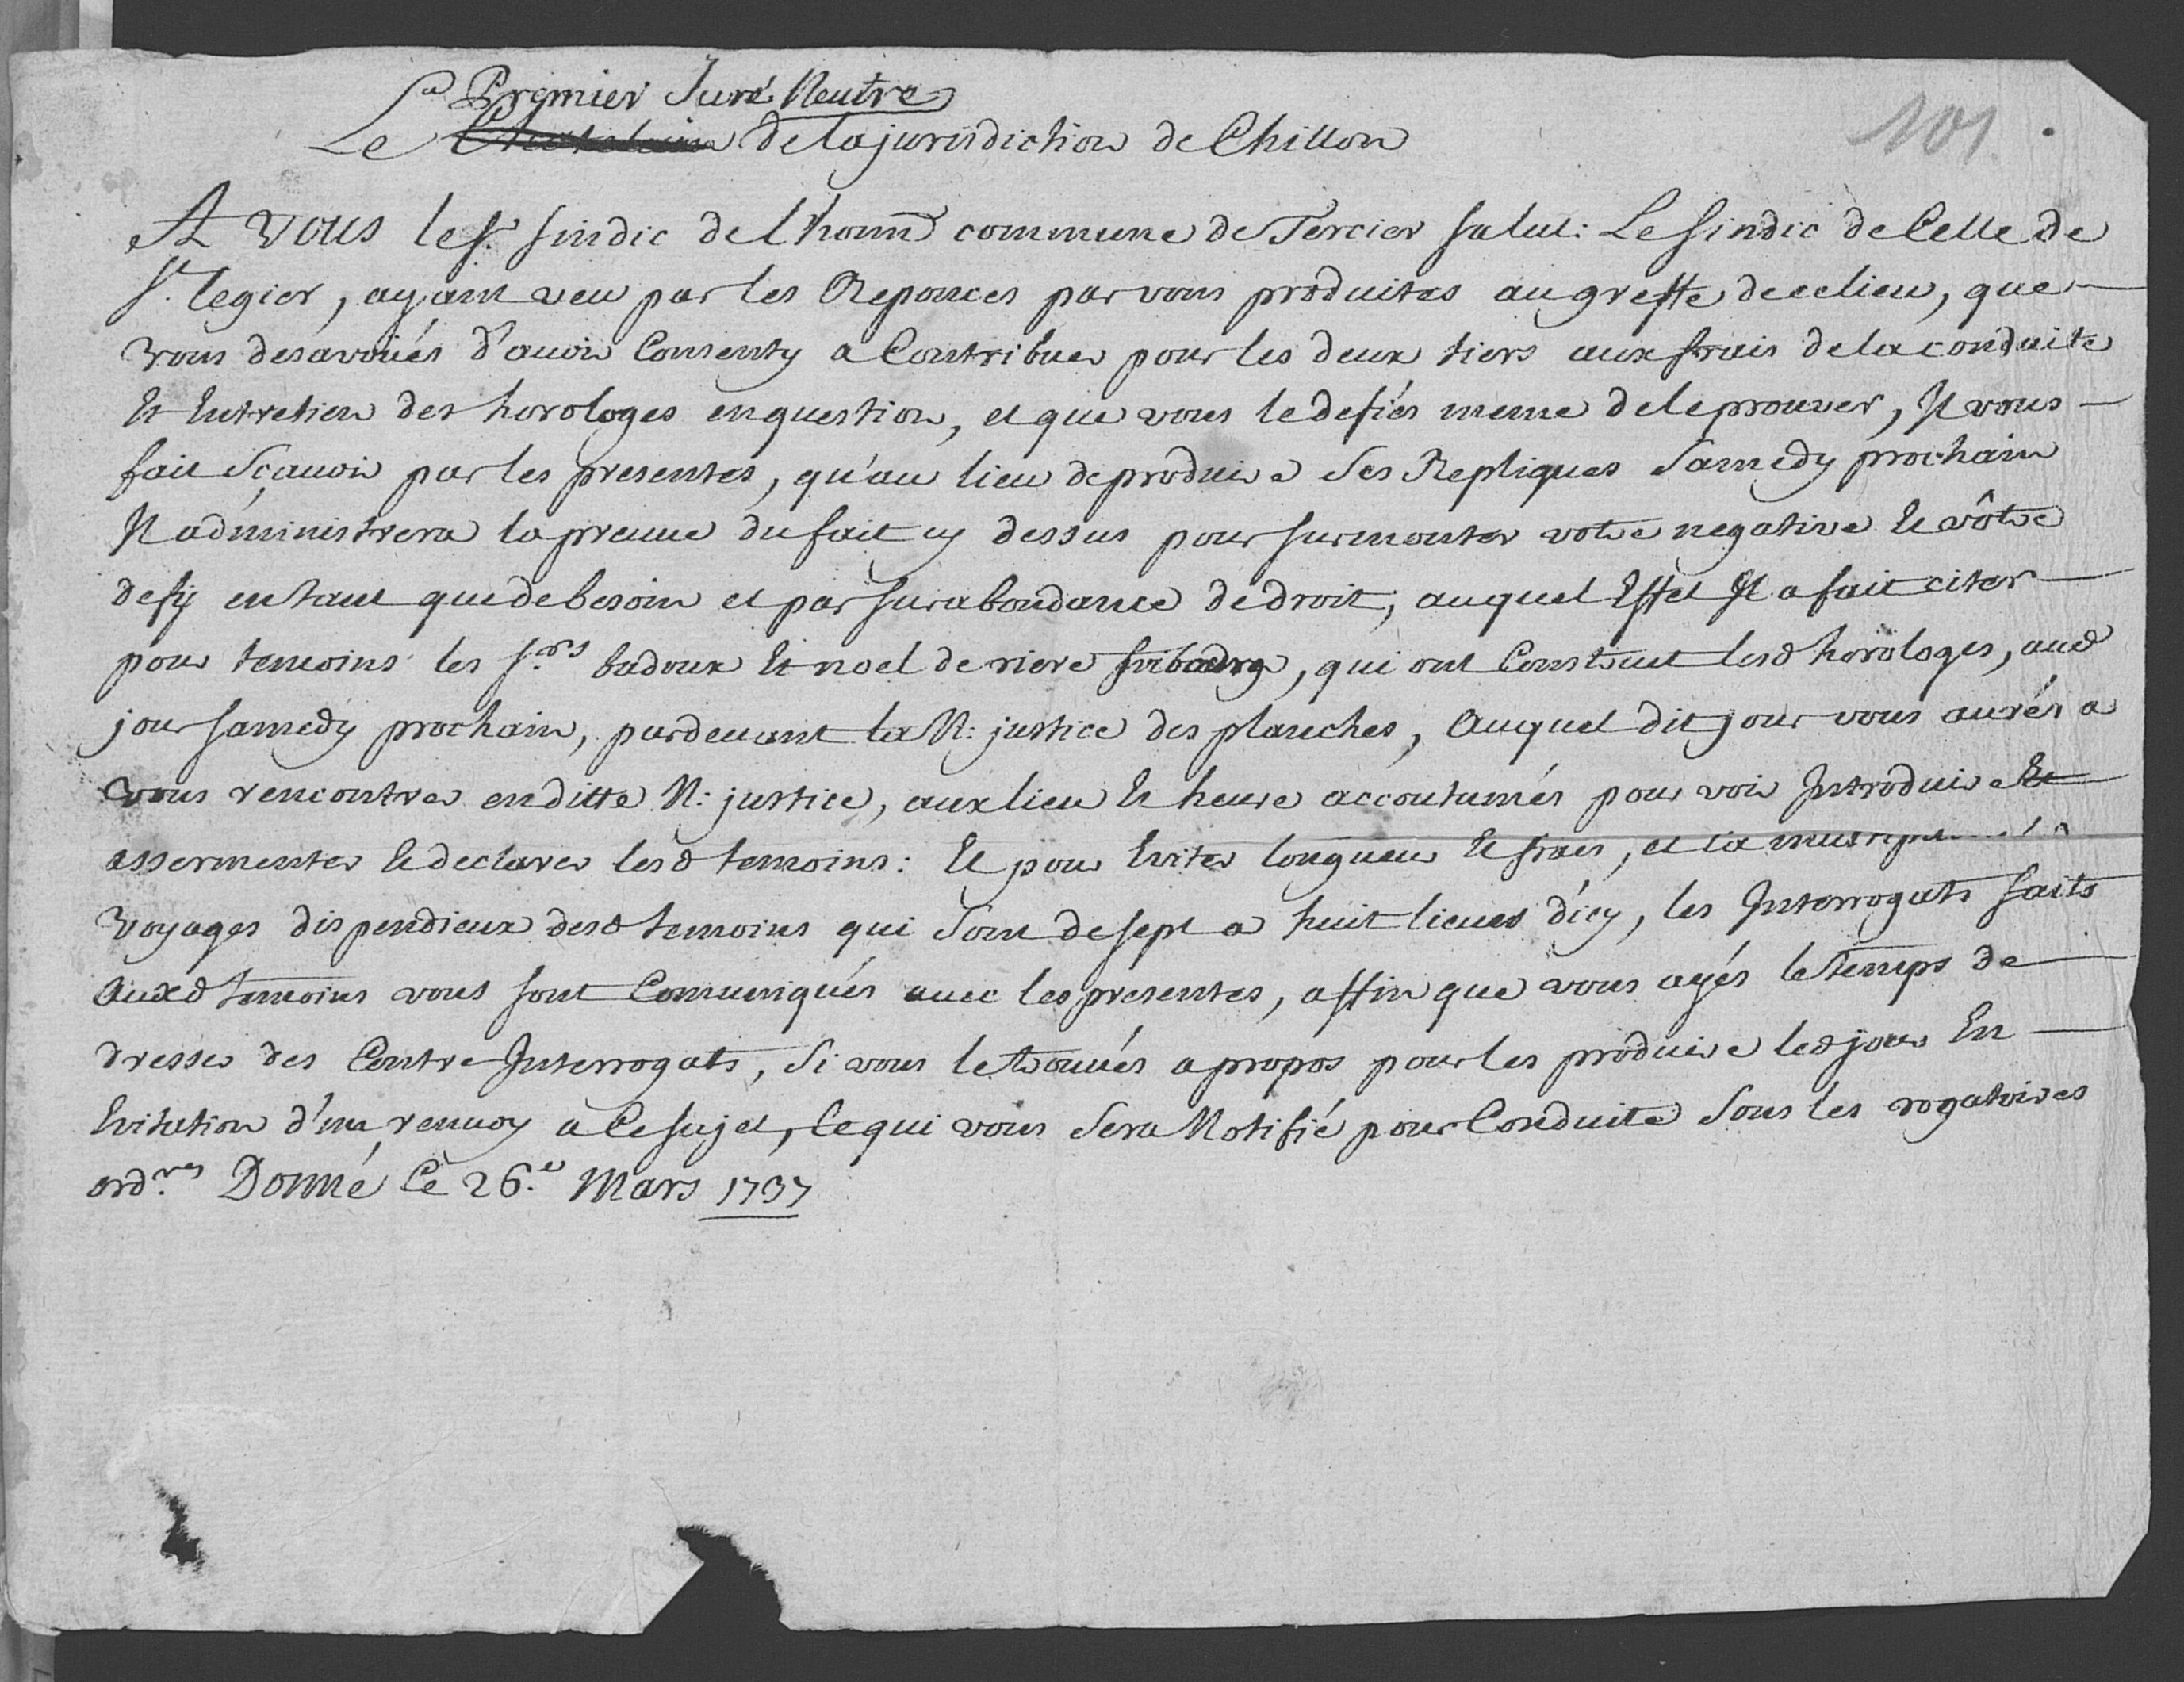 Sr Premier Juré Neutre
101
Le de la jurisdiction de Chillon
A vous le Sr. sindic de l'honn commune de Tercier salut: Le sindic de Celle de
St. legier, ayant veu par les Reponces par vous produites au greffe de ce lieu, que
vous desavoués d'avoir Consenty a Contribuer pour les deux tiers aux frais de la conduite
Et Entretien des horologes en question, et que vous le defiés meme de le prouver, Il vous
fait sçavoir par les presentes, qu'au lieu de produire ses Repliques samedy prochain
Il administrera la preuve du fait cy dessus pour surmonter votre negative Et vôtre
defy en tant que de besoin et par surabondance de droit, auquel Effet Il a fait citer
pour temoins les Srs. badoux Et noel de riere fribourg, qui ont Construit lesd horologes, aud
jour samedy prochain, pardevant la N: justice des planches, Auquel dit jour vous aurés a
vous rencontrer en ditte N: justice, aux lieu Et heure accoutumés pour voir Introduire Et
assermenter Et declarer lesd temoins: Et pour Eviter longueur Et frais, et la
voyages dispendieux desd temoins qui sont de sept a huit lieues d'icy, les Interrogats faits
Auxd temoins vous sont Comuniqués avec les presentes, affin que vous ayés le temps de
dresser des Contre-Interrogats, si vous le trouvés a propos pour les produire led jour En
Evitation d'un renvoy a Ce sujet, Ce qui vous sera Notifié pour Conduite sous les rogatoires
ordres. Donné Ce 26.e Mars 1737